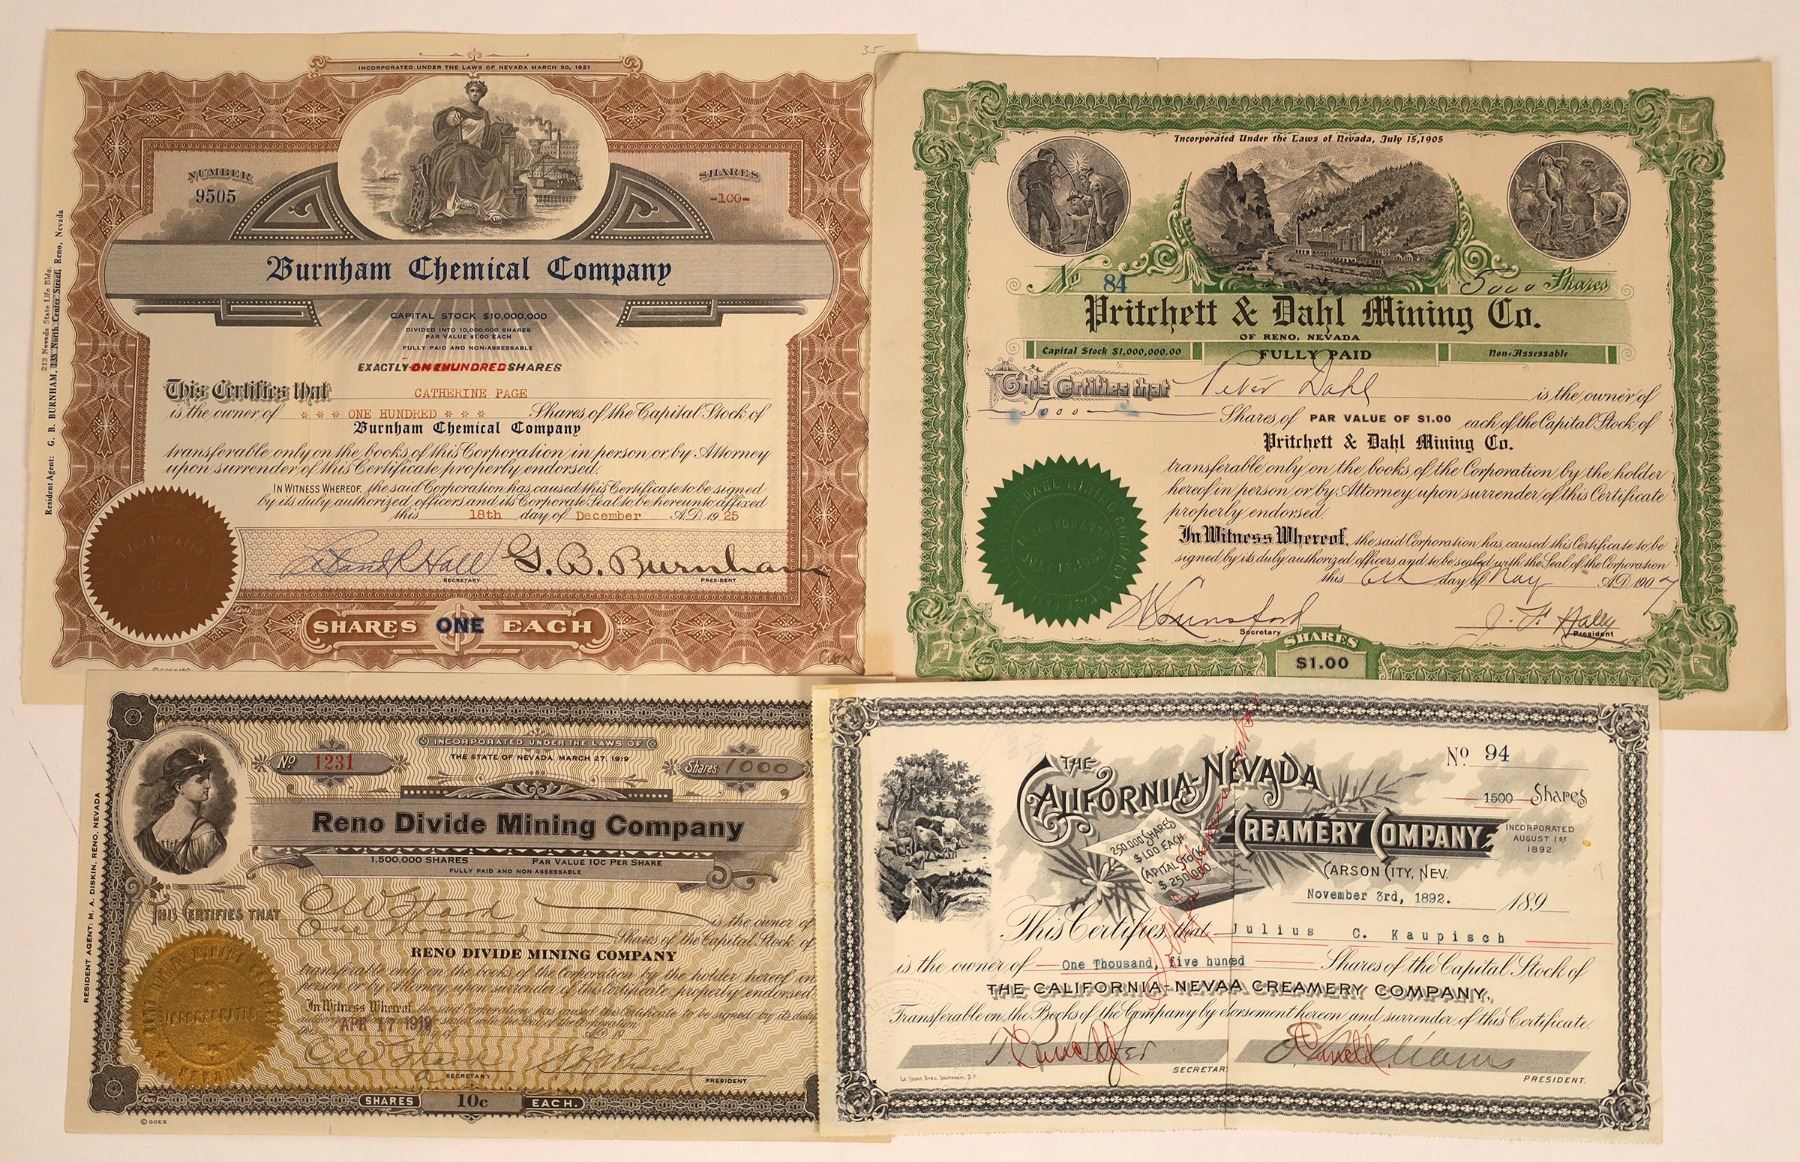 35-
INCORPORATED UNDER THE LAWS OF NEVADA MARCH 30, 1921
NUMBER
9505
SHARES
-100-
Burnham Chemical Company
CAPITAL STOCK $10,000,000
DIVIDED INTO 10,000,000 SHARES
PAR VALUE $1.00 EACH
FULLY PAID AND NON-ASSESSABLE
EXACTLY ONE HUNDRED SHARES
This Certifies that CATHERINE PAGE
is the owner of * * * ONE HUNDRED * * * Shares of the Capital Stock of
Burnham Chemical Company
transferable only on the books of this Corporation in person or by Attorney
upon surrender of this Certificate properly endorsed.
IN WITNESS WHEREOF, the said Corporation has caused this Certificate to be signed
by its duly authorized officers and its Corporate Seal to be hereunto affixed
this 18th day of December A.D. 1925
Hall
SECRETARY
G. B. Burnham
PRESIDENT
SHARES ONE EACH
Resident Agent: G. B. BURNHAM, 135 North Center Street, Reno, Nevada
212 Nevada State Life Bldg.
INCORPORATED
1921
Incorporated Under the Laws of Nevada, July 15, 1905
No 84
5000 Shares
Pritchett & Dahl Mining Co.
OF RENO, NEVADA
Capital Stock $1,000,000.00
FULLY PAID
Non-Assessable
This Certifies that Peter Dahl is the owner of
5000 Shares of PAR VALUE OF $1.00 each of the Capital Stock of
Pritchett & Dahl Mining Co.
transferable only on the books of the Corporation by the holder
hereof in person or by Attorney upon surrender of this Certificate
properly endorsed.
In Witness Whereof, the said Corporation has caused this Certificate to be
signed by its duly authorized officers, and to be sealed with the Seal of the Corporation
this 6th day of May A.D. 1907
Secretary
J. F. Haley
President
SHARES
$1.00
DAHL MINING COMPANY
INCORPORATED
JULY 15, 1905
INCORPORATED UNDER THE LAWS OF
THE STATE OF NEVADA, MARCH 27, 1919
No 1231
Shares 1000
Reno Divide Mining Company
1,500,000 SHARES PAR VALUE 10C PER SHARE
FULLY PAID AND NON-ASSESSABLE
THIS CERTIFIES THAT C W is the owner of
One thousand Shares of the Capital Stock of
RENO DIVIDE MINING COMPANY
transferable only on the books of the Corporation by the holder hereof in
person or by Attorney, upon surrender of this Certificate properly endorsed
In Witness Whereof, the said Corporation has caused this Certificate to be signed by its duly
APR 17 1919
SECRETARY
PRESIDENT
SHARES 10c EACH.
© GOES
RESIDENT AGENT: M. A. DISKIN, RENO, NEVADA
RENO DIVIDE MINING COMPANY
INCORPORATED
NEVADA
THE
CALIFORNIA-NEVADA
CREAMERY COMPANY
No 94
1500 Shares
250,000 SHARES
$1.00 EACH
CAPITAL STOCK
$250,000
INCORPORATED
AUGUST 1ST
1892.
CARSON CITY, NEV.
November 3rd, 1892. 189
This Certifies, that Julius C. Kaupisch
is the owner of One Thousand, five huned Shares of the Capital Stock of
THE CALIFORNIA-NEVAA CREAMERY COMPANY,
Transferable on the Books of the Company by endorsement hereon and surrender of this Certificate.
Canceld
SECRETARY
Canceld
Williams
PRESIDENT.